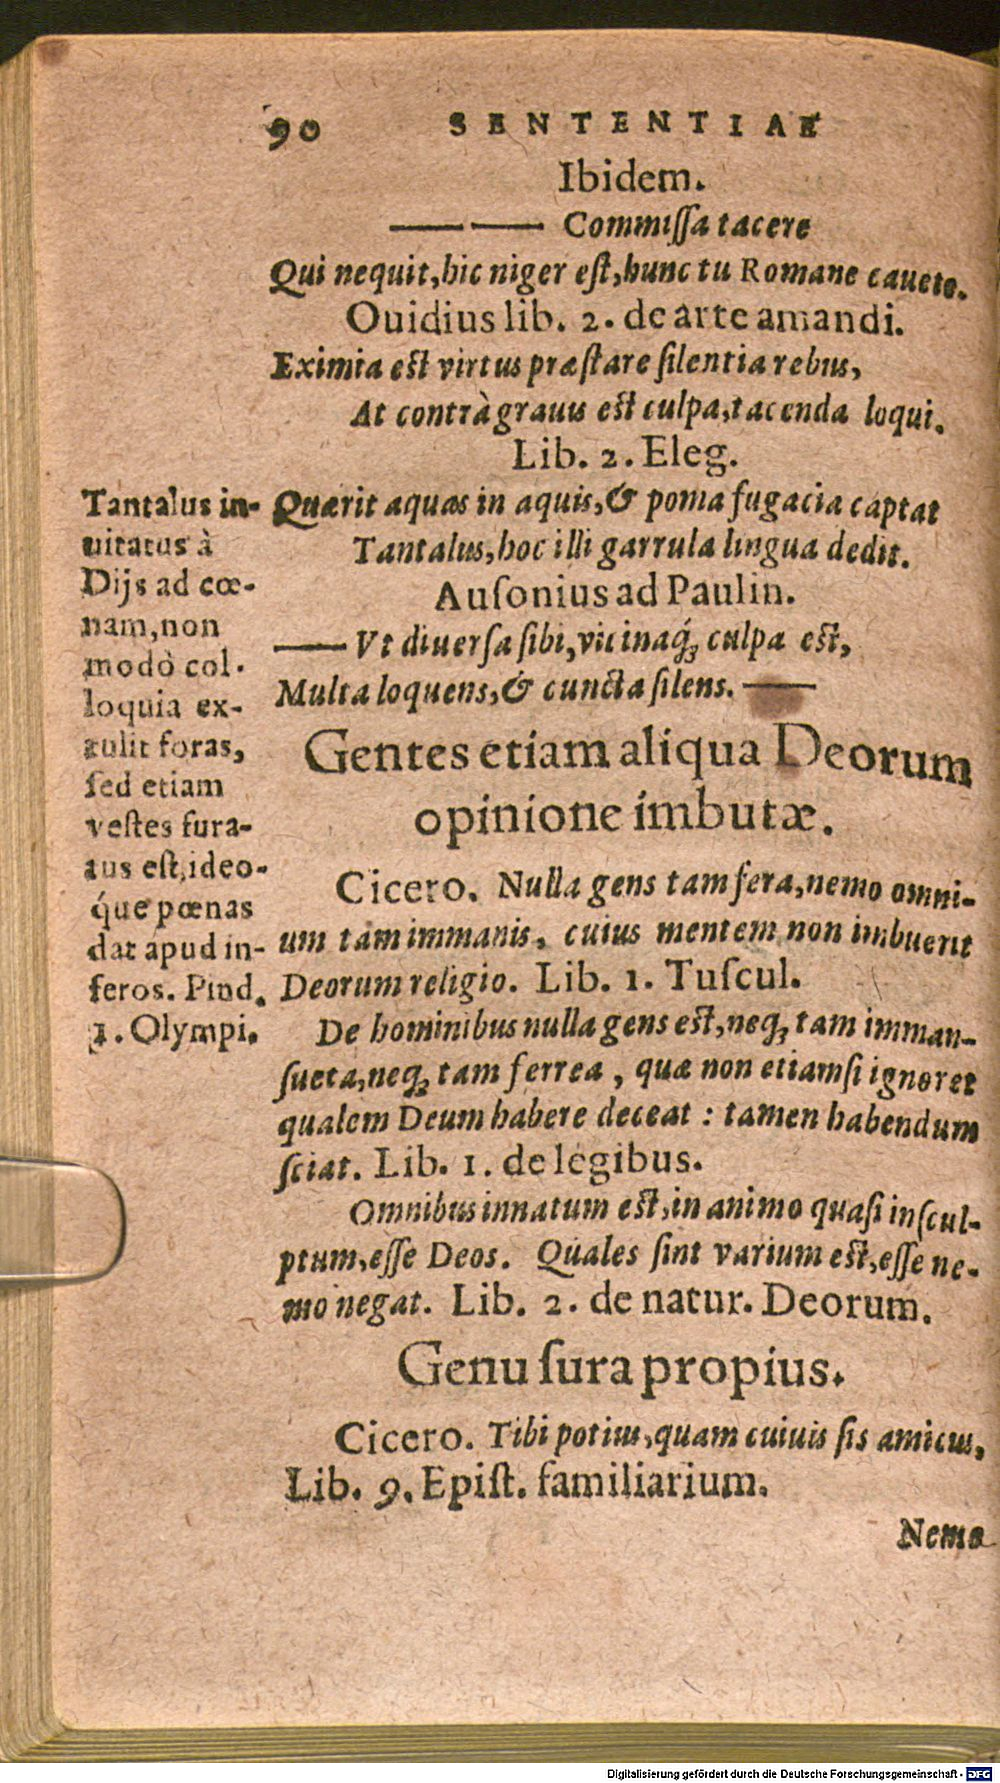 90 SENTENTIAE
Ibidem.
—— —— Commiſſa tacere
Qui nequit, hic niger eſt, hunc tu Romane caueto.
Ouidius lib. 2. de arte amandi.
Eximia eſt virtus præſtare ſilentia rebus,
At contrà grauis eſt culpa, tacenda loqui.
Lib. 2. Eleg.
Quærit aquas in aquis, & poma fugacia captat
Tantalus, hoc illi garrula lingua dedit.
Auſonius ad Paulin.
—— Vt diuerſa ſibi, vicinaq́ꝫ culpa eſt,
Multa loquens, & cuncta ſilens. ——
Tantalus in-
uitatus à
Dijs ad cœ-
nam, non
modò col-
loquia ex-
tulit foras,
ſed etiam
veſtes fura-
tus eſt, ideo-
q́ue pœnas
dat apud in-
feros. Pind.
1. Olympi.
Gentes etiam aliqua Deorum
opinione imbutæ.
Cicero. Nulla gens tam fera, nemo omni-
um tam immanis, cuius mentem non imbuerit
Deorum religio. Lib. 1. Tuſcul.
De hominibus nulla gens eſt, neqꝫ tam imman-
ſueta, neqꝫ tam ferrea, quæ non etiamſi ignoret
qualem Deum habere deceat: tamen habendum
ſciat. Lib. 1. de legibus.
Omnibus innatum eſt, in animo quaſi inſcul-
ptum, eſſe Deos. Quales ſint varium eſt, eſſe ne-
mo negat. Lib. 2. de natur. Deorum.
Genu ſura propius.
Cicero. Tibi potius, quam cuiuis ſis amicus,
Lib. 9. Epiſt. familiarium.
Nemo
Digitalisierung gefördert durch die Deutsche Forschungsgemeinschaft - DFG